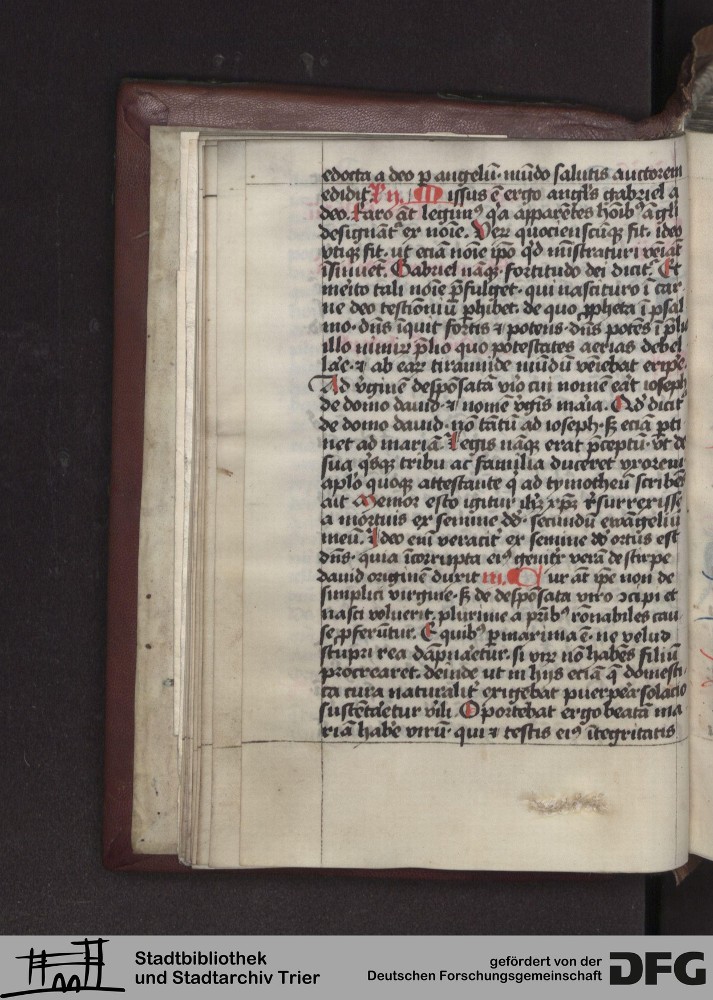 edocta a deo p angelū· mūdo salutis auctorem
edidit R̃ ij. Missus ē ergo angl̓s gabriel a
deo. Raro āt legim⁹ q̓a apparētes hoīb⁹ āgl̓i
designāt᷑ ex noīe. Verū quocienscūq; fit· ideo
vtiq; fit· ut eciā noīe ip̄o q̓d mīstraturi veīāt
īsinuēt. Gabriel nāq; fortitudo dei dicit᷑. Et
merito tali noīe p̄fulget· qui nascituro ī car
ne deo testīoniū p̱hibet· de quo p̱pheta ī psal
mo· dn̄s īquit fortis ⁊ potens· dn̄s potēs ī p̄lio
illo nimirū p̄lio quo potestates aerias debel
la͛e· ⁊ ab earū tirannide mūdū veīebat eripe͛.
Ad v͛ginē despōsatā viro cui nomē erat ioseph
de domo dauid· ⁊ nomē v͛gīs maria. Qd̓ dicit᷑
de domo dauid· nō tātū ad ioseph· s; eciā p̱ti
net ad mariā. Legis nāq; erat p̄ceptū· vt de
sua q̓sq; tribu ac familia duceret vxorem
aplo͛ quoq; attestante q̓ ad tymotheū scribēs
ait Memor esto igitur ihm̄ xp̄m r͛surrexisse
a mortuis ex semine dd̓· secundū ewāgeliū
meū. Ideo eni veracit͛ ex semine dd̓ ortus est
dn̄s· quia īcorrupta ei⁹ genit͛x verā de stirpe
dauid originē duxit iij. Cur āt ip̄e non de
simplici virgine· s; de despōsata viro ɔcipi et
nasci voluerit· plurime a prīb⁹ rōnabiles cau
se p̱ferūtur. E quib⁹ p̱maxima ē· ne velud
stupri rea dāpnaretur· si virū nō habēs filiū
procrearet· deinde ut in hijs eciā q̄ domesti
ca cura naturalit͛ exigebat puerpera solacio
sustētaretur v͛ili. Oportebat ergo beatā ma
riā habe͛ virū· qui ⁊ testis ei⁹ ītegritatis
Stadtbibliothek
und Stadtarchiv Trier
gefördert von der
Deutschen Forschungsgemeinschaft
DFG